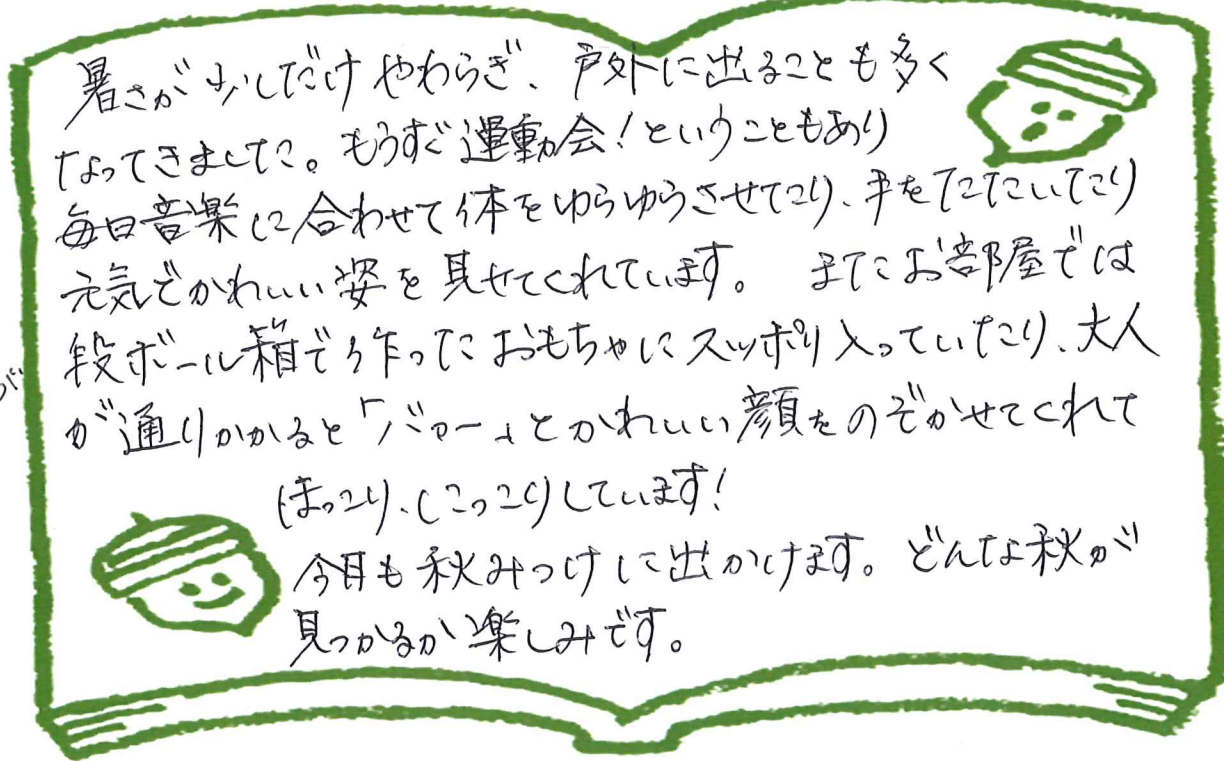 暑さが少しだけやわらぎ、戸外に出ることも多く
なってきました。もうすぐ運動会!ということもあり
毎日音楽に合わせて体をゆらゆらさせたり、手をたたいたり
元気でかわいい姿を見せてくれています。 またお部屋では
段ボール箱で作ったおもちゃにスッポリ入っていたり、大人
が通りかかると「バァー」とかわいい顔をのぞかせてくれて
ほっこり、にこっこりしています!
今日も秋みつけに出かけます。どんな秋が
見つかるか楽しみです。